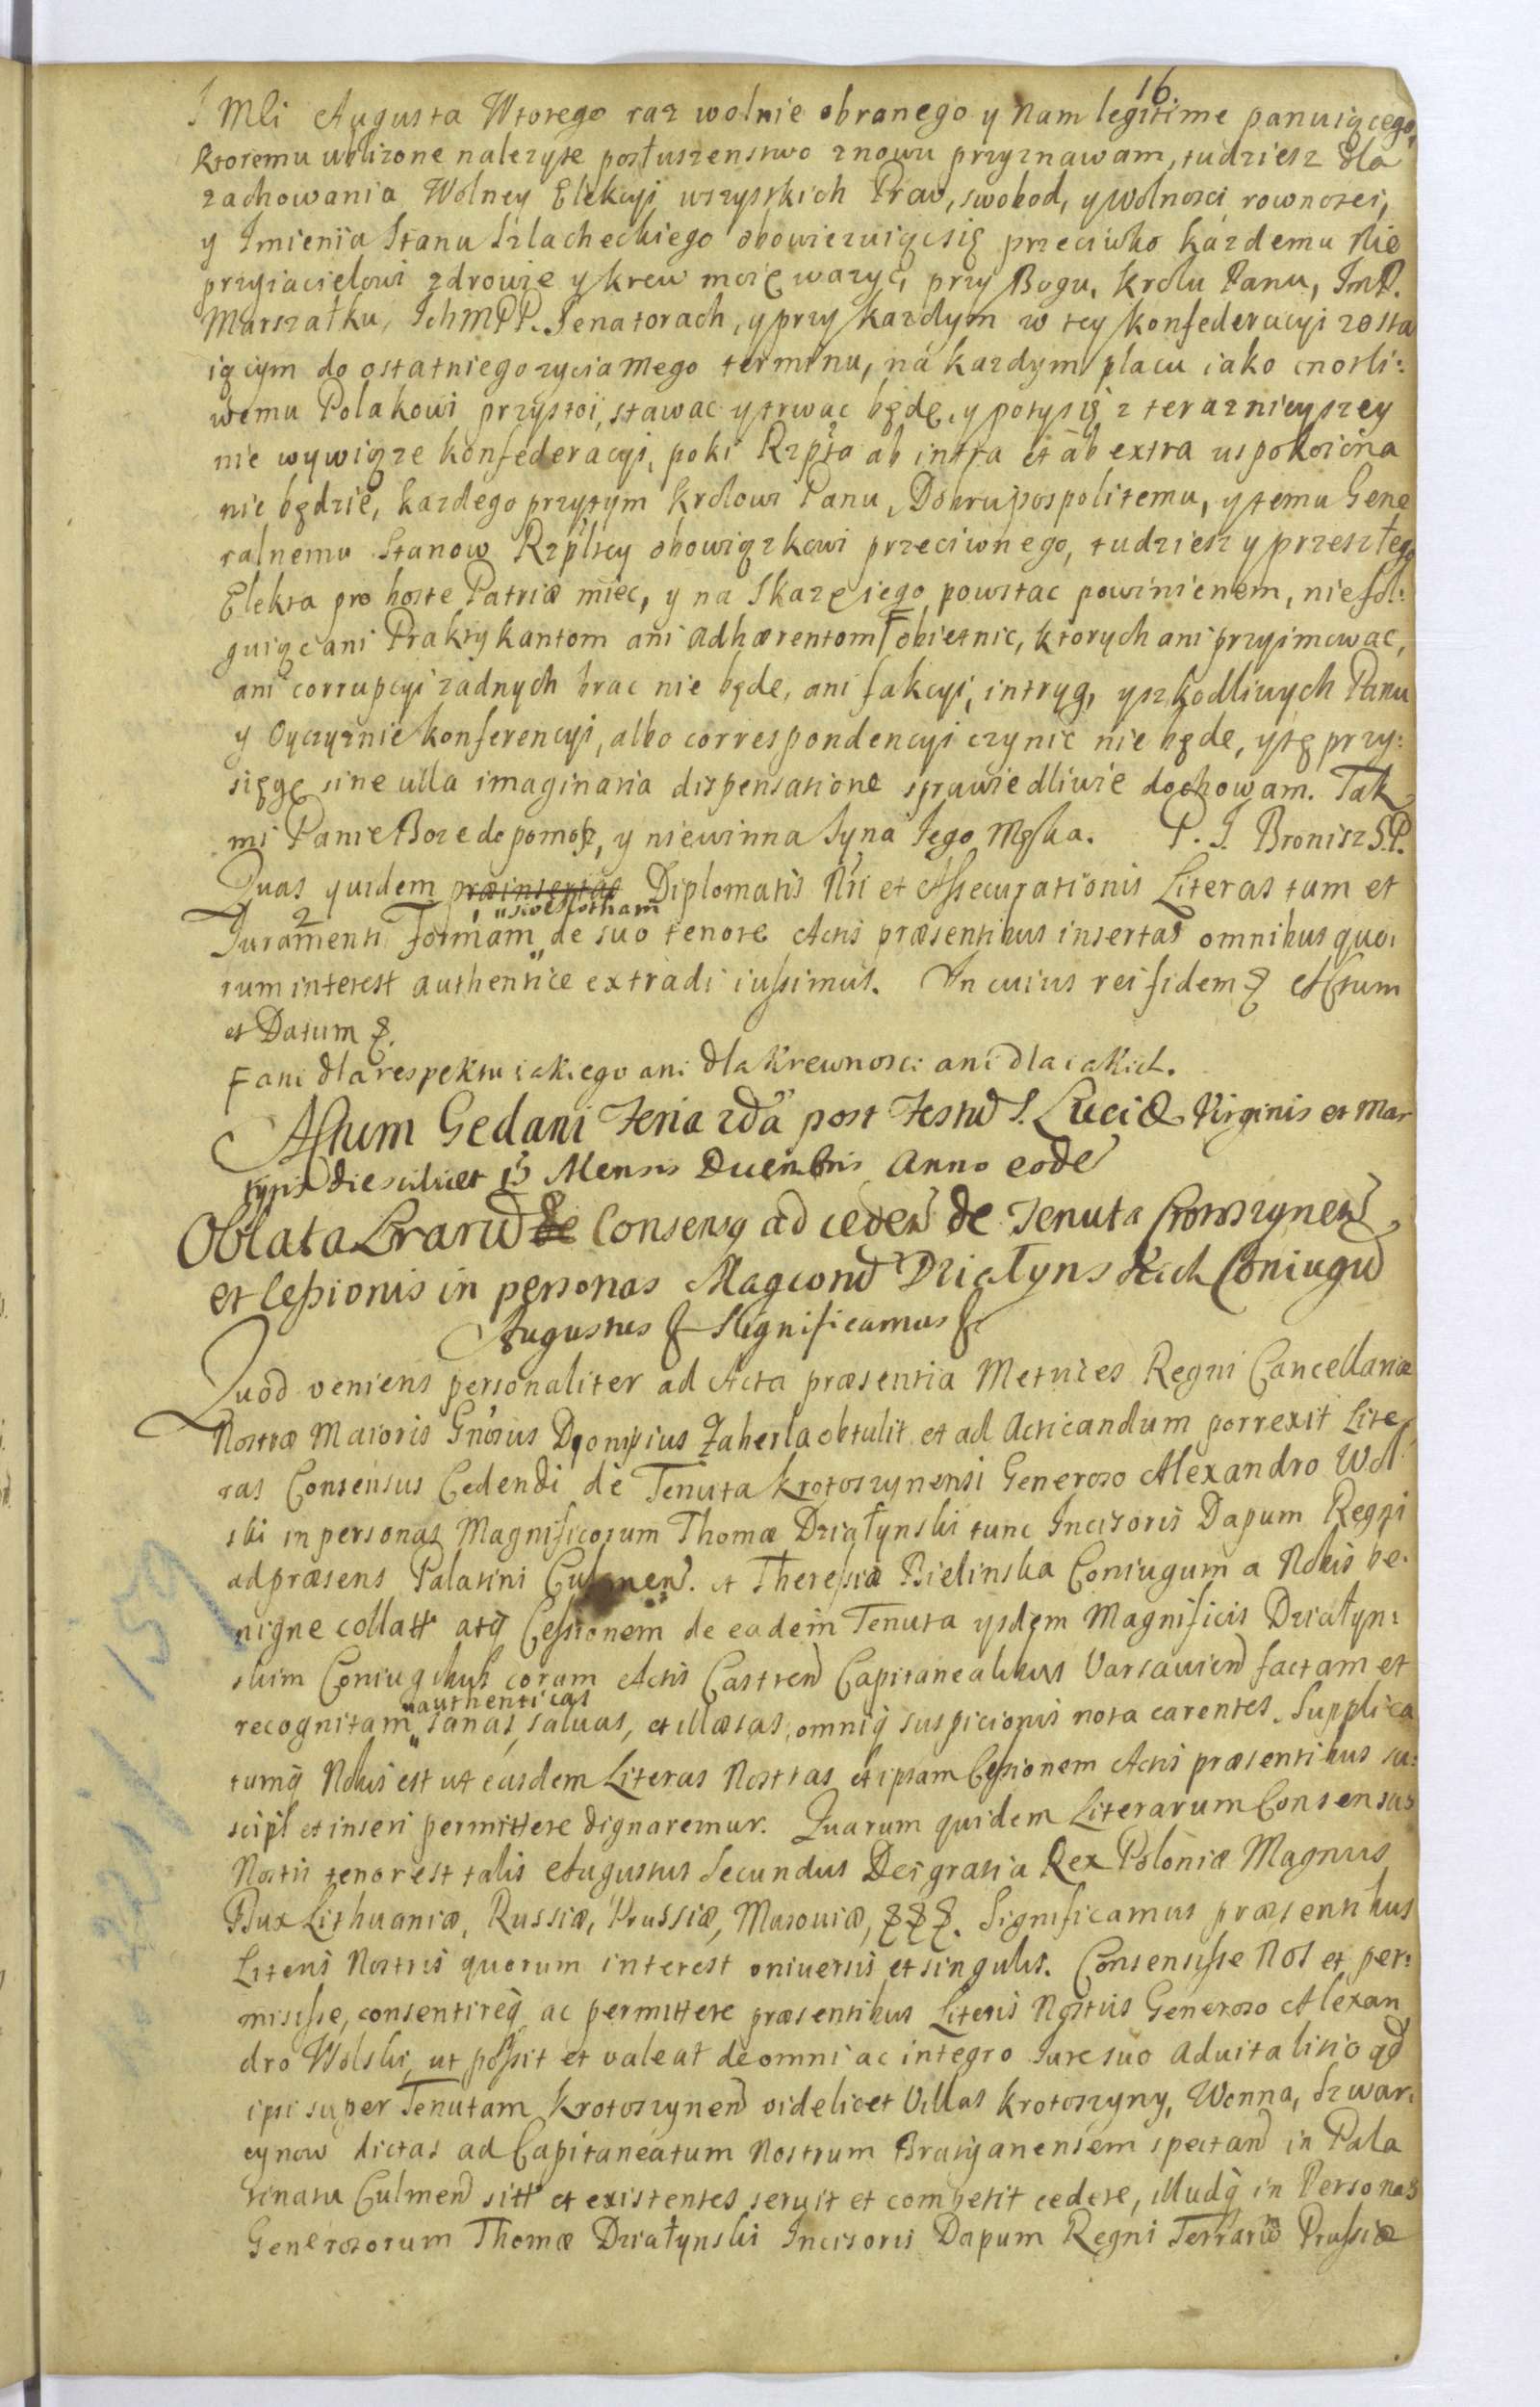 16.
J Mći Augusta Wtorego raz wolnie obranego y Nam legitime panuiącego,
ktoremu ubliżone nalezyte posłuszenstwo znowu przyznawam, tudziesz dla
zachowania Wolney Elekcyi wszystkich Praw, swobod, y Wolnosci rownosci,
y Imienia Stanu Szlacheckiego obowiezuiącsię przeciwko każdemu Nie
przyiacielowi zdrowie y krew moię wazyc, przy Bogu, Krolu Panu, ImP.
Marszałku, IchMPP. Senatorach, y przy kazdym w tey konfederacyi zosta
iącym do ostatniego zycia mego terminu, na kazdym placu iako cnotli:
wemu Polakowi przystoi, stawac y trwac będę, y poty się z teraznieyszey
nie wywiąze konfederacyi, poki Rzpta ab intra et ab extra uspokoiona
nie będzie, kazdego przytym Krolowi Panu, Dobrupospolitemu, y temu Gene
ralnemu Stanow Rzpltey obowiązkowi przeciwnego, tudziesz y przeszłego
Elekta pro hoste Patriæ miec, y na Skazę iego powstac powinienem, nie fol:
guiąc ani Praktykantom ani Adhærentom F obietnic, ktorych ani przyimowac,
ani corrupcyi zadnych brac nie będe, ani fakcyi, intryg, y szkodliwych Panu
y Oyczyznie konferencyi, albo correspondencyi czynić nie będe, y tę przy:
sięgę sine ulla imaginaria dispensatione sprawiedliwie dochowam. Tak
mi Panie Boze dopomosz, y niewinna Syna Jego Męka. P. J. Bronisz S.P.
Quas quidem præinsertas Diplomatis Nri et Assecurationis Literas tum et
"sive Rotham
Juramenti Formam " de suo tenore Actis præsentibus insertas omnibus quo:
rum interest authentice extradi iussimus. In cuius rei fidem & Actum
et Datum &.
F ani dla respektu iakiego ani dla krewnosci ani dla iakich.
Actum Gedani Feria 2da post Festu S. Luciæ Virginis et Mar
tyris die scilicet 15 Mensis Decembris Anno eode
Oblata Lraru de Consensq ad ceden de Tenuta Crotoszynen
et Cessionis in personas Magcoru Działyns kich Coniugu
Augustus & Significamus &
Quod veniens personaliter ad Acta præsentia Metrices Regni Cancellariæ
Nostræ Maioris Gnosus Dyonisius Zaherla obtulit et ad Acticandum porrexit Lite
ras Consensus Cedendi de Tenuta Krotoszynensi Generoso Alexandro Wol
ski in personas Magnificorum Thomæ Działynski tunc Incisoris Dapum Regni
ad præsens Palatini Culmen. et Theresiæ Bielinska Coniugum a Nobis be:
nigne collatt atq Cessionem de eadem Tenuta ysdem Magnificis Działyn:
skim Coniugibus coram Actis Castren Capitanealibus Varsavien factam et
"authenticas
recognitam " sanas, salvas, et illæsas, omniq suspicionis nota carentes. Supplica
tumq Nobis est ut easdem Literas Nostras et ipsam Cessionem Actis præsentibus su:
scipi et inseri permittere dignaremur. Quarum quidem Literarum Consensus
Nostri tenor est talis Augustus Secundus Dei gratia Rex Poloniæ Magnus
Dux Lithuaniæ, Russiæ, Prussiæ, Masoviæ, & & &. Significamus præsentibus
Literis Nostris quorum interest universis et singulis. Consensisse Nos et per:
misisse, consentireq ac permittere præsentibus Literis Nostris Generoso Alexan
dro Wolski, ut possit et valeat de omni ac integro Iure suo Advitalitio qd
ipsi super Tenutam Krotoszynen videlicet Villas Krotoszyny, Wonna, Szwar:
cynow dictas ad Capitaneatum Nostrum Bratyanensem spectan in Pala
tinatu Culmen sitt et existentes servit et competit cedere, illudq in Personas
Generosorum Thomæ Działynski Incisoris Dapum Regni Terraru Prussiæ